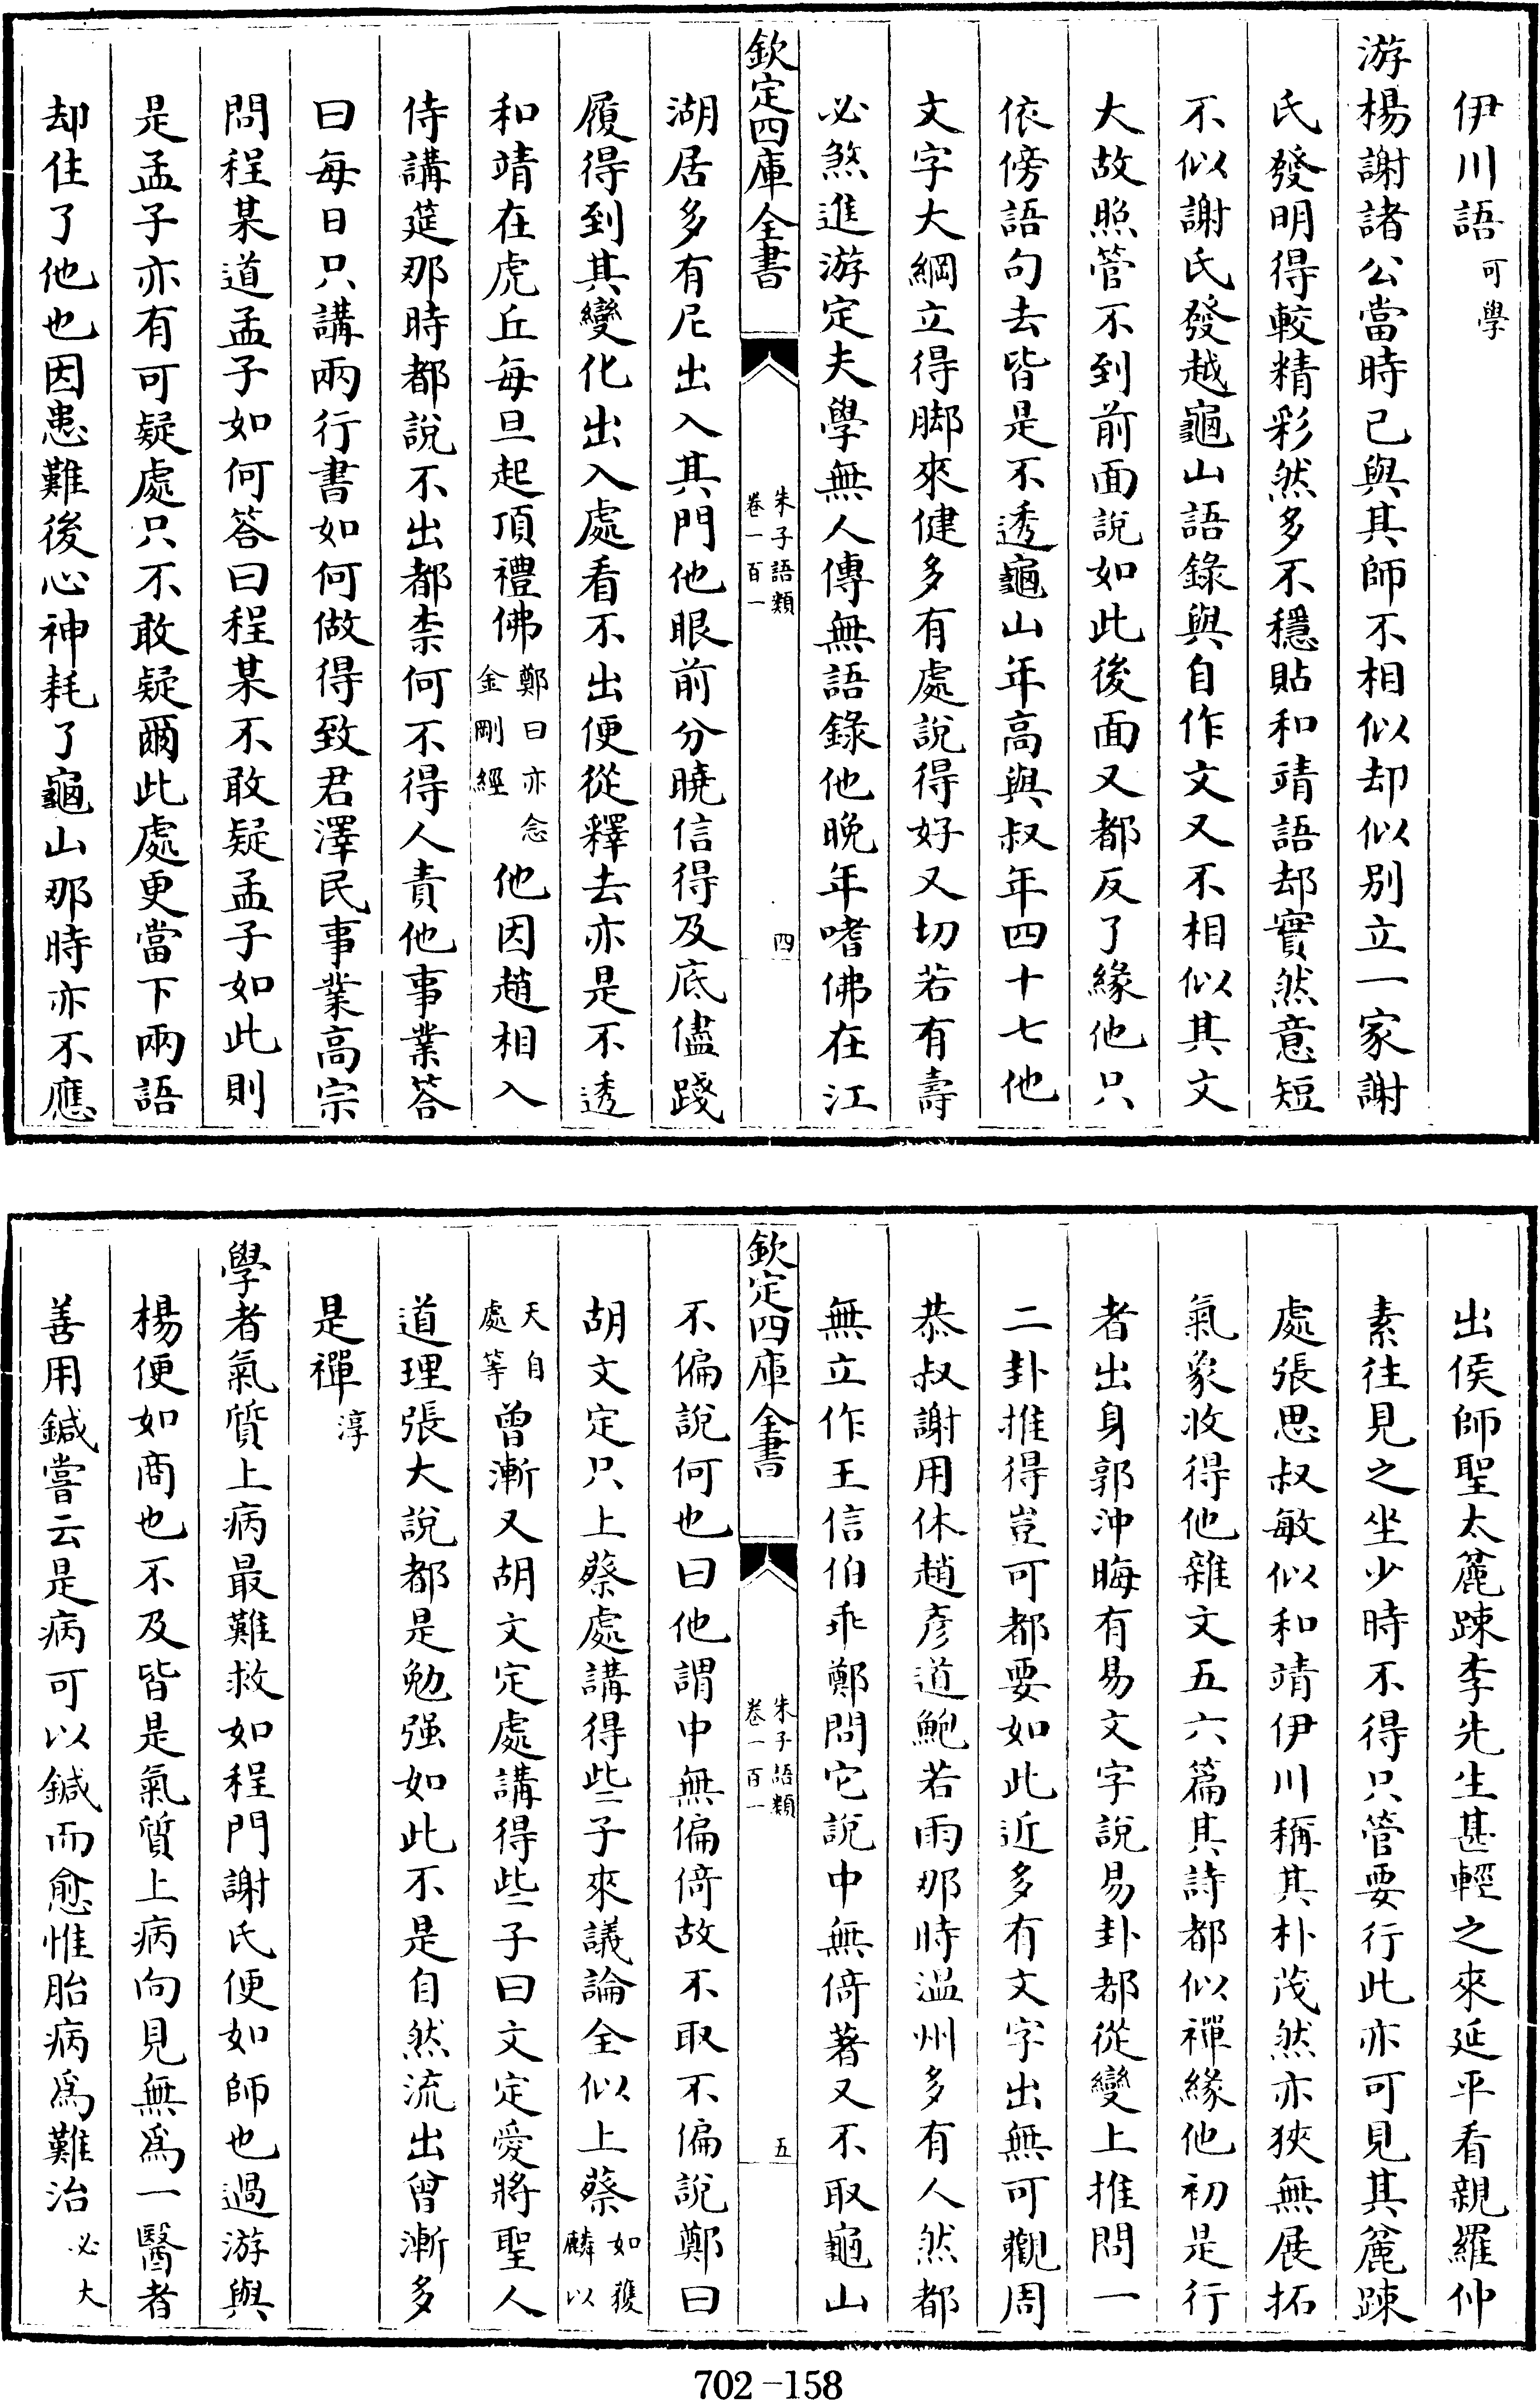 伊川語可學
游楊謝諸公當時已與其師不相似却似别立一家謝
氏發明得較精彩然多不穩貼和靖語却實然意短
不似謝氏發越龜山語錄與自作文又不相似其文
大故照管不到前面說如此後面又都反了緣他只
依傍語句去皆是不透龜山年高與叔年四十七他
文字大綱立得脚來健多有處說得好又切若有壽
必煞進游定夫學無人傳無語錄他晚年嗜佛在江
欽定四庫全書
朱子語類
卷一百一
四
湖居多有尼出入其門他眼前分曉信得及底儘踐
履得到其變化出入處看不出便從釋去亦是不透
和靖在虎丘每旦起頂禮佛鄭曰亦念金剛經他因趙相入
侍講筵那時都說不出都柰何不得人責他事業答
曰每日只講兩行書如何做得致君澤民事業高宗
問程某道孟子如何答曰程某不敢疑孟子如此則
是孟子亦有可疑處只不敢疑爾此處更當下兩語
却住了他也因患難後心神耗了龜山那時亦不應
出侯師聖太麄踈李先生甚輕之來延平看親羅仲
素往見之坐少時不得只管要行此亦可見其麄踈
處張思叔敏似和靖伊川稱其朴茂然亦狹無展拓
氣象收得他雜文五六篇其詩都似禪緣他初是行
者出身郭沖晦有易文字說易卦都從變上推問一
二卦推得豈可都要如此近多有文字出無可觀周
恭叔謝用休趙彦道鮑若雨那時温州多有人然都
無立作王信伯乖鄭問它說中無倚著又不取龜山
欽定四庫全書
朱子語類
卷一百一
五
不偏說何也曰他謂中無偏倚故不取不偏說鄭曰
胡文定只上蔡處講得些子來議論全似上蔡如獲麟以
天自處等曾漸又胡文定處講得些子曰文定愛將聖人
道理張大說都是勉强如此不是自然流出曾漸多
是禪淳
學者氣質上病最難救如程門謝氏便如師也過游與
楊便如商也不及皆是氣質上病向見無爲一醫者
善用鍼嘗云是病可以鍼而愈惟胎病爲難治必大
702-158